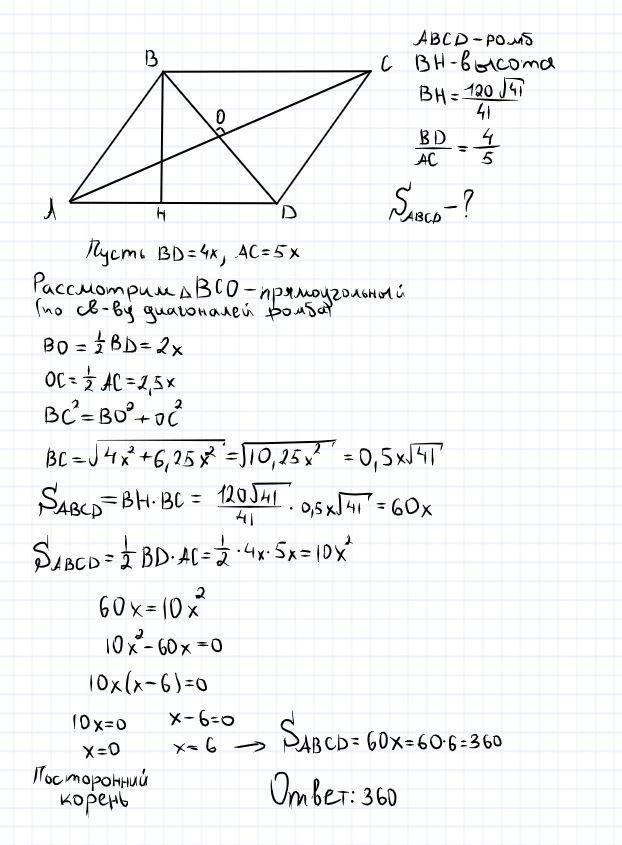 ABCD-ромб
BH-высота
BH = 120√41/41
BD/AC = 4/5
S_ABCD - ?
B
C
O
A
H
D
Пусть BD=4x, AC=5x
Рассмотрим △BCO-прямоугольный
(по св-ву диагоналей ромба)
BO = 1/2 BD = 2x
OC = 1/2 AC = 2,5x
BC² = BO² + OC²
BC = √(4x² + 6,25x²) = √(10,25x²) = 0,5x√41
S_ABCD = BH · BC = 120√41/41 · 0,5x√41 = 60x
S_ABCD = 1/2 BD · AC = 1/2 · 4x · 5x = 10x²
60x = 10x²
10x² - 60x = 0
10x(x-6) = 0
10x=0 x-6=0
x=0 x=6 → S_ABCD = 60x = 60·6 = 360
Посторонний
корень
Ответ: 360